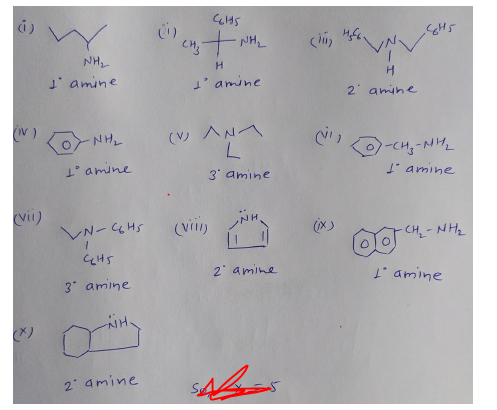 (i) NH₂
1° amine
(ii) C₆H₅
CH₃ NH₂
H
1° amine
(iii) H₅C₆ N C₆H₅
H
2° amine
(iv) NH₂
1° amine
(v) N
3° amine
(vi) CH₃-NH₂
1° amine
(vii) N-C₆H₅
C₆H₅
3° amine
(viii) NH
2° amine
(ix) CH₂-NH₂
1° amine
(x) NH
2° amine
= 5